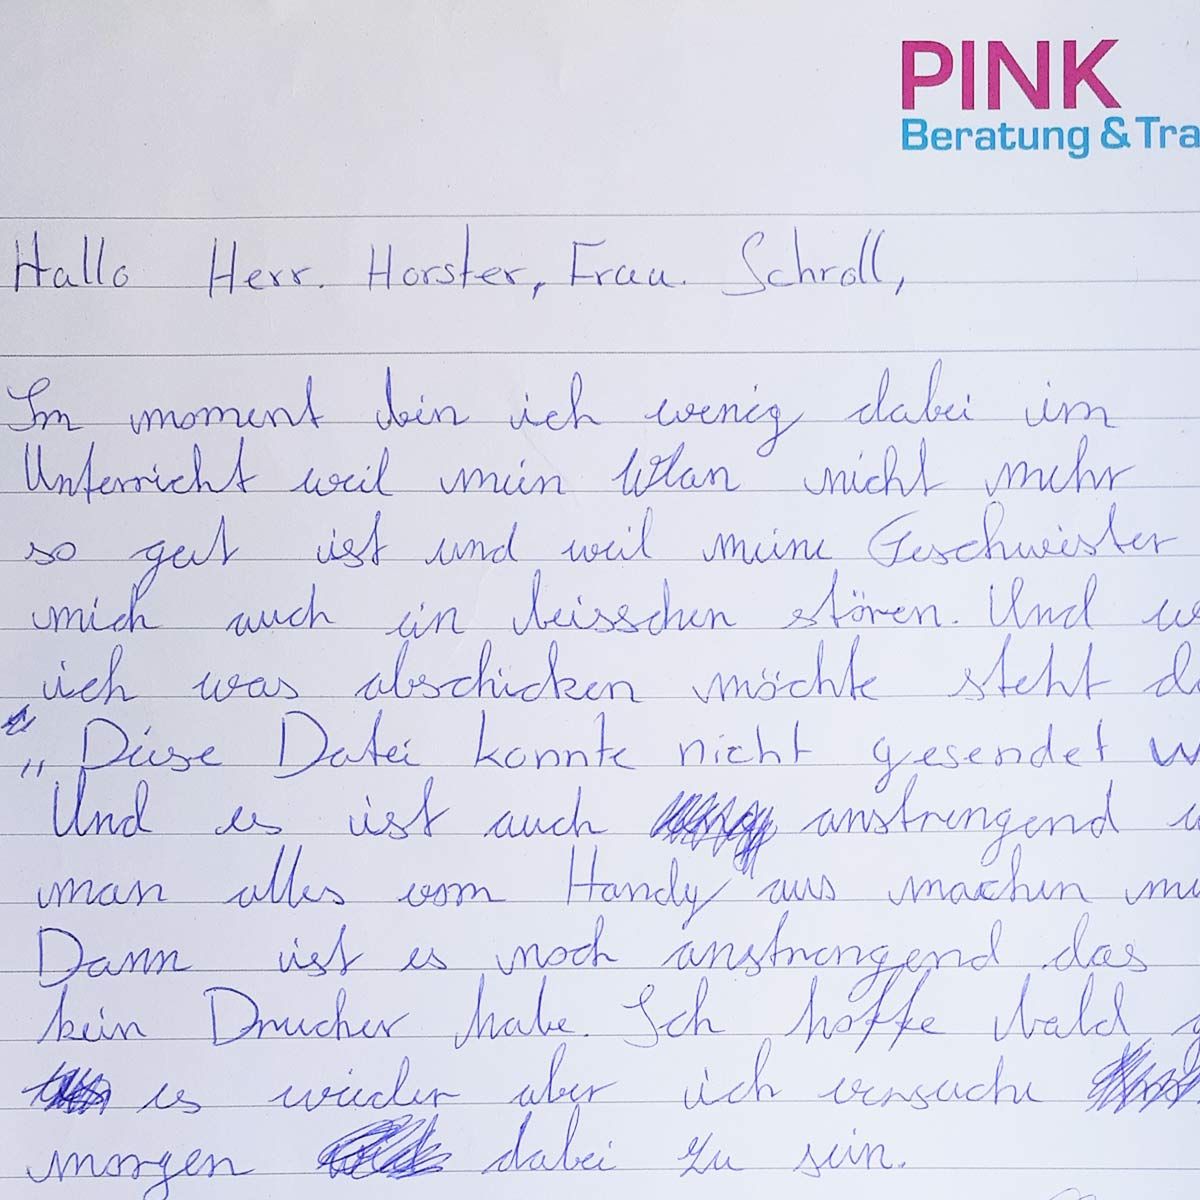 PINK
Beratung & Tra
Hallo Herr. Horster, Frau. Schroll,
Im moment bin ich wenig dabei im
Unterricht weil mein Wlan nicht mehr
so gut ist und weil meine Geschwister
mich auch ein beisschen stören. Und we
ich was abschicken möchte steht da
„Diese Datei konnte nicht gesendet w
Und es ist auch anstrengend w
man alles vom Handy aus machen mu
Dann ist es noch anstrengend das
kein Drucker habe. Ich hoffe bald g
es wieder aber ich versuche
morgen dabei zu sein.